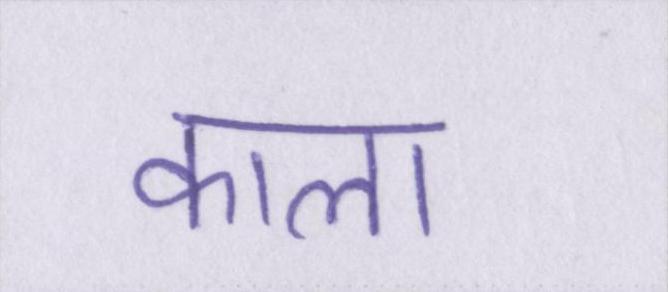 काला